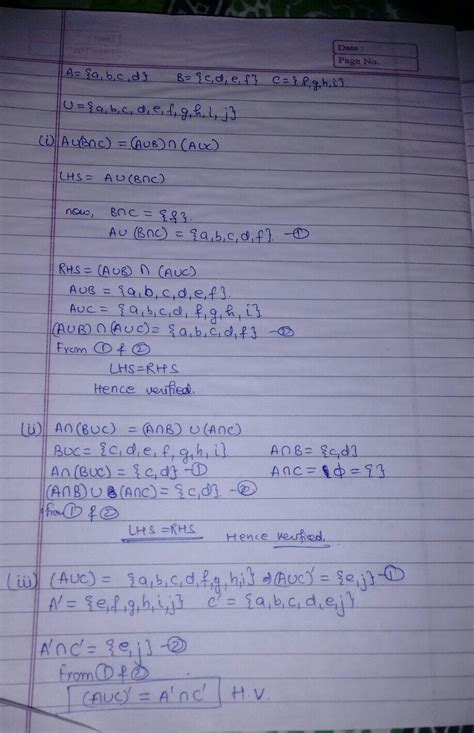 Date :
Page No.
A = {a, b, c, d} B = {c, d, e, f} C = {f, g, h, i}.
U = {a, b, c, d, e, f, g, h, i, j}
(i) A∪(B∩C) = (A∪B)∩(A∪C)
LHS = A∪(B∩C)
now, B∩C = {f}.
A∪(B∩C) = {a, b, c, d, f}. -①
RHS = (A∪B)∩(A∪C)
A∪B = {a, b, c, d, e, f}.
A∪C = {a, b, c, d, f, g, h, i}
(A∪B)∩(A∪C) = {a, b, c, d, f} -②
From ① & ②
LHS = RHS
Hence verified.
(ii) A∩(B∪C) = (A∩B)∪(A∩C)
B∪C = {c, d, e, f, g, h, i} A∩B = {c, d}
A∩(B∪C) = {c, d} -① A∩C = ϕ = {}
(A∩B)∪(A∩C) = {c, d}. -②
from ① & ②
LHS = RHS Hence verified.
(iii) (A∪C) = {a, b, c, d, f, g, h, i} ⇒ (A∪C)' = {e, j} -①
A' = {e, f, g, h, i, j} C' = {a, b, c, d, e, j}
A'∩C' = {e, j} -②
from ① & ②
(A∪C)' = A'∩C' H.V.